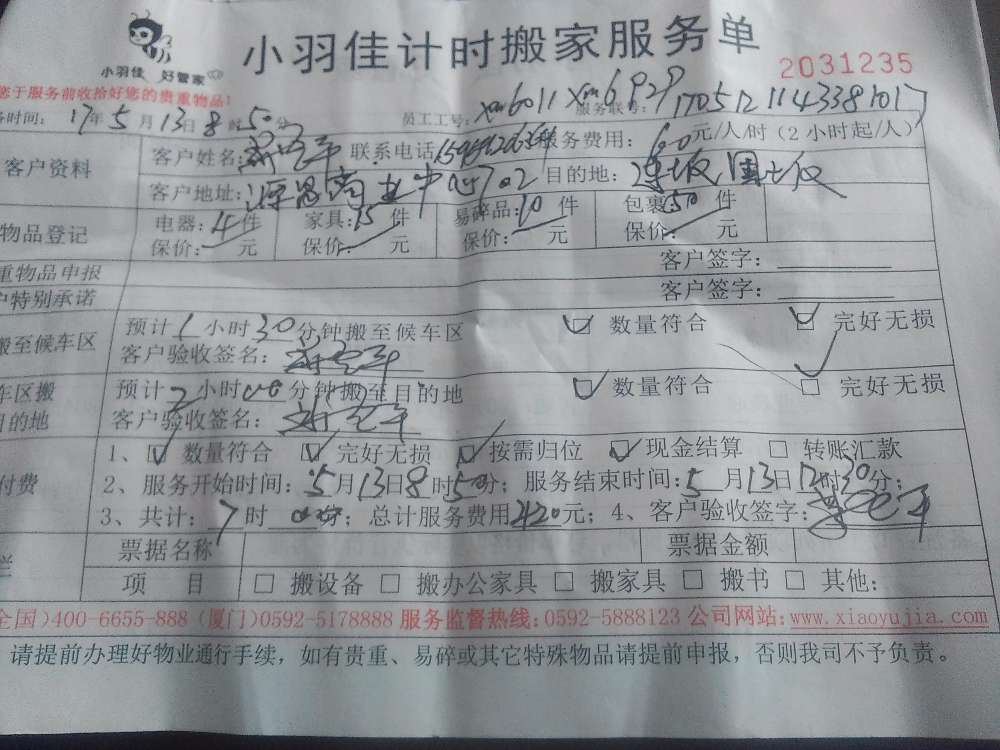 小羽佳 好管家
小羽佳计时搬家服务单
2031235
您于服务前收拾好您的贵重物品!
务时间: 17年5月13日8时50分 员工工号: xm6011 xm6929 服务联号: 170512114338101
客户资料 客户姓名: 联系电话 服务费用: 60元/人/时(2小时起/人)
客户地址: 商业中心702 目的地:
物品登记 电器: 4件 家具: 15件 易碎品: 10件 包裹: 50件
保价: 元 保价: 元 保价: 元 保价: 元
重物品申报 客户签字:
户特别承诺 客户签字:
搬至候车区 预计1小时30分钟搬至候车区 数量符合 完好无损
客户验收签名:
车区搬目的地 预计2小时00分钟搬至目的地 数量符合 完好无损
客户验收签名:
付费 1、 数量符合 完好无损 按需归位 现金结算 转账汇款
2、服务开始时间: 5月13日8时50分; 服务结束时间: 5月13日12时30分;
3、共计: 7时00分; 总计服务费用420元; 4、客户验收签字:
栏 票据名称 票据金额
项 目 搬设备 搬办公家具 搬家具 搬书 其他:
全国)400-6655-888 (厦门)0592-5178888 服务监督热线:0592-5888123 公司网站:www.xiaoyujia.com
请提前办理好物业通行手续,如有贵重、易碎或其它特殊物品请提前申报,否则我司不予负责。